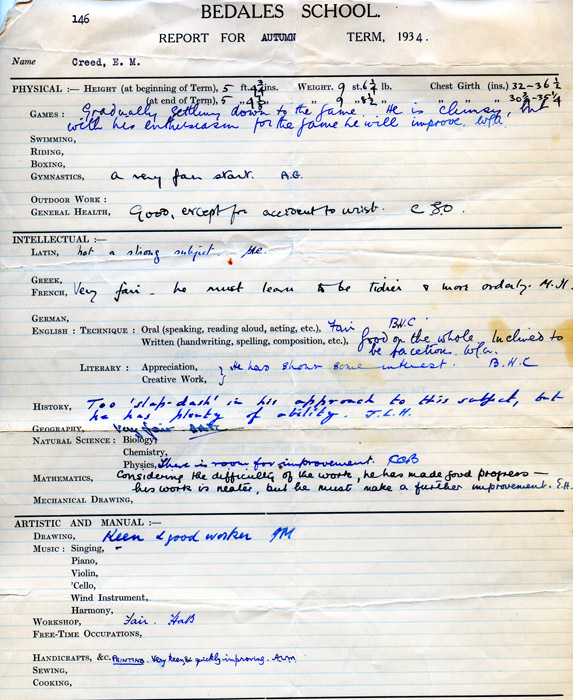 146
BEDALES SCHOOL.
REPORT FOR AUTUMN TERM, 1934.
Name Creed, E. M.
PHYSICAL :— HEIGHT (at beginning of Term), 5 ft. 4 3/4 ins. WEIGHT. 9 st. 6 1/4 lb. Chest Girth (ins.) 32–36 1/2
(at end of Term), 5 „ 4 „ „ 9 „ 8 1/2 „ „ „ „ 30 3/4–35 1/4
GAMES : Gradually settling down to the game. He is clumsy, but
with his enthusiasm for the game he will improve.
SWIMMING,
RIDING,
BOXING,
GYMNASTICS, a very fair start. A.G.
OUTDOOR WORK :
GENERAL HEALTH, Good, except for accident to wrist.
INTELLECTUAL :—
LATIN, not a strong subject.
GREEK,
FRENCH, Very fair – he must learn to be tidier & more orderly. M.H.
GERMAN,
ENGLISH : TECHNIQUE : Oral (speaking, reading aloud, acting, etc.), Fair B.H.C
Written (handwriting, spelling, composition, etc.), Good on the whole. Inclined to
be facetious.
LITERARY : Appreciation, } He has shown some interest. B.H.C
Creative Work,
HISTORY, Too 'slap-dash' in his approach to this subject, but
he has plenty of ability. J.L.H.
GEOGRAPHY, Very fair
NATURAL SCIENCE : Biology,
Chemistry,
Physics, There is room for improvement.
MATHEMATICS, Considering the difficulty of the work, he has made good progress —
his work is neater, but he must make a further improvement. E.H.
MECHANICAL DRAWING,
ARTISTIC AND MANUAL :—
DRAWING, Keen & good worker
MUSIC : Singing, –
Piano,
Violin,
'Cello,
Wind Instrument,
Harmony,
WORKSHOP, Fair.
FREE-TIME OCCUPATIONS,
HANDICRAFTS, &c. PRINTING. Very keen & quickly improving.
SEWING,
COOKING,